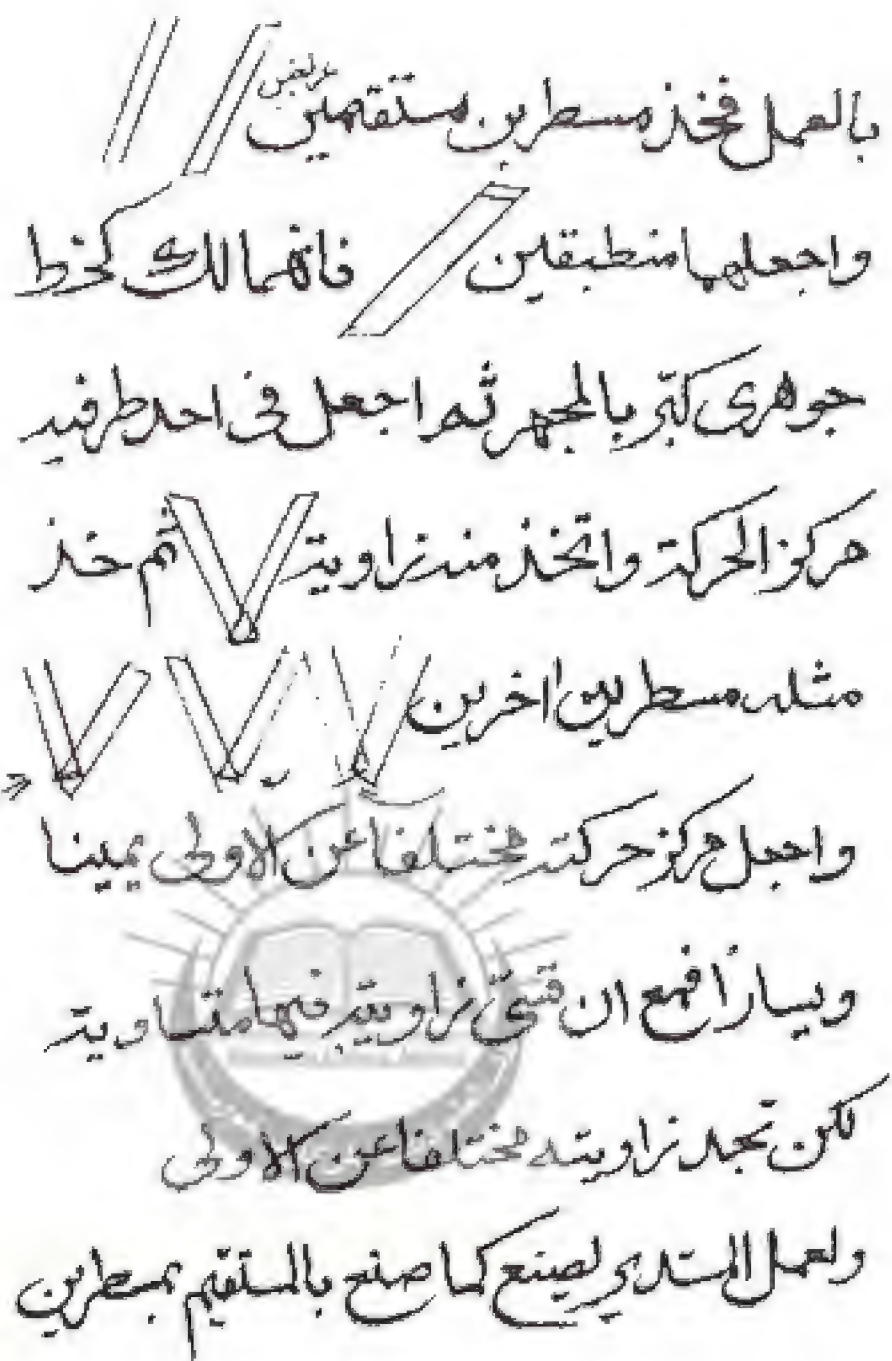 بالعمل فخذ مسطرين مستقيمين عريضين
واجعلهما منطبقين فانهما لك كخط
جوهرى كبّر بالمجهر ثم اجعل فى احد طرفيه
مركز الحركة واتخذ منه زاوية ثم خذ
مثله مسطرين اخرين
واجعل مركز حركته مختلفا عن الاولى يمينا
ويسارًا فمع ان زاوية فيها متساوية
لكن تجد زاويته مختلفا عن الاولى
ولعمل المستدير ليصنع كما صنع بالمستقيم بمسطرين